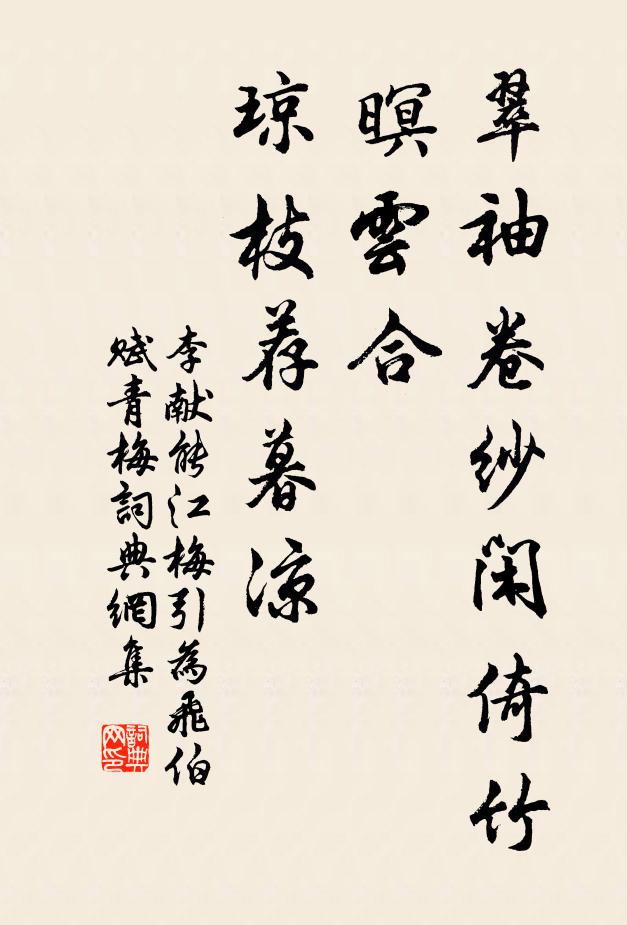 翠袖卷纱闲倚竹
暝雲合
琼枝荐暮凉
李献能江梅引為飛伯
赋青梅詞典網集
詞典
网印